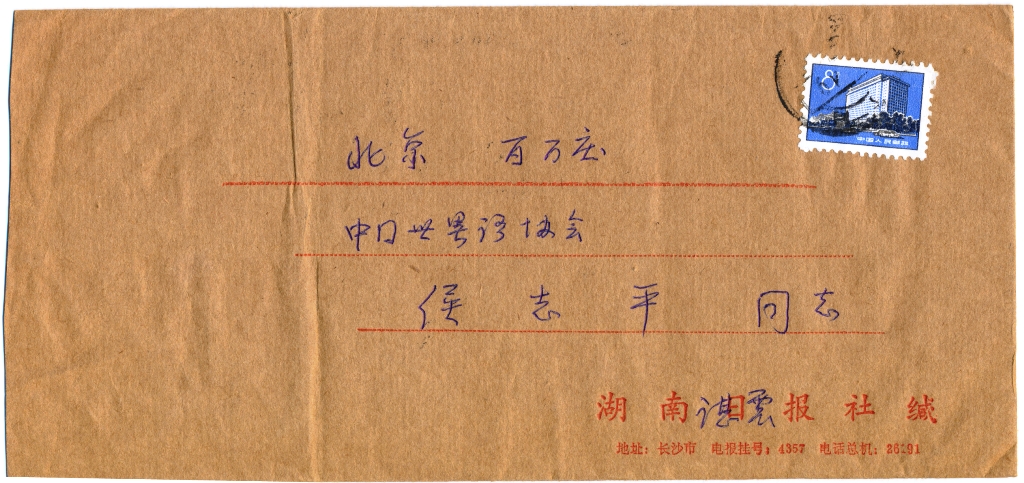 8
中国人民邮政
北京 百万庄
中国世界语协会
侯志平 同志
湖南日报社缄
谌震
地址：长沙市 电报挂号：4357 电话总机：26191